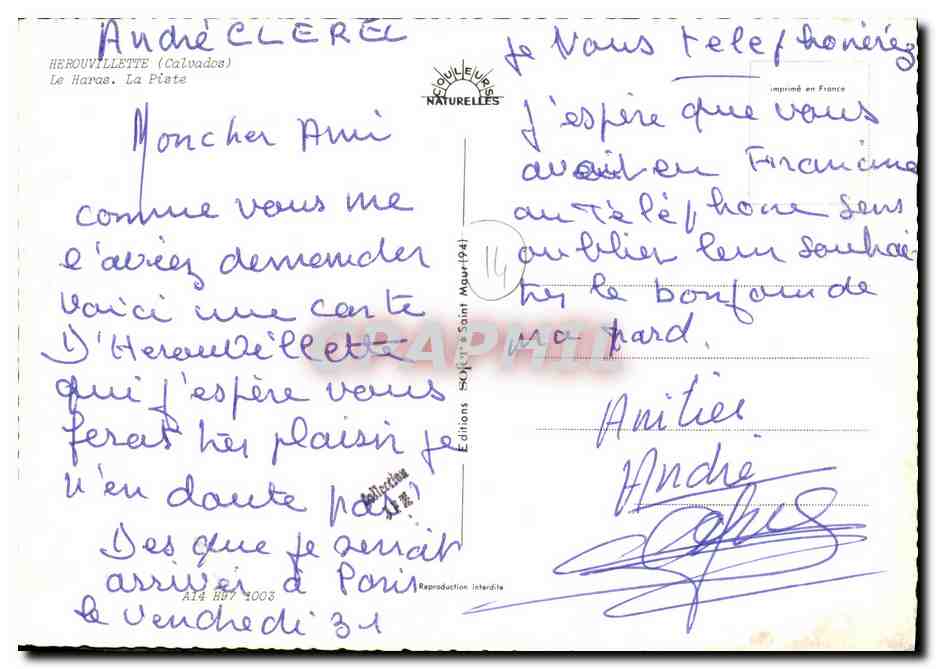 André CLEREL
HEROUVILLETTE (Calvados)
Le Haras. La Piste
COULEURS
NATURELLES
imprimé en France
Mon cher Ami
comme vous me
l'aviez demander
voici une carte
D'Herouvillette
qui j'espère vous
feras très plaisir je
n'en doute pas?
Des que je serrait
arriver à Paris
le vendredi 31
A14 H97 1003
Reproduction interdite
Editions à Saint Maur (94)
14
Collection
GRAPHIL
je vous telephonérez
j'espère que vous
avait en Francine
au Téléphone sens
oublier leur souhai
ter le bonjour de
ma pard.
Amitier
André